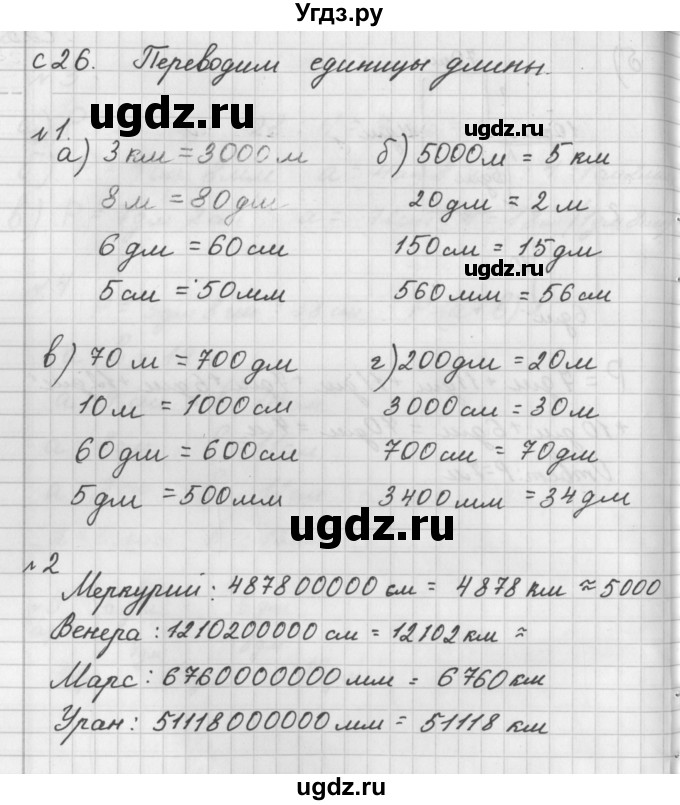 Угдз.ру
с 26. Переводим единицы длины.
ugdz.ru
ugdz.ru
№1.
а) 3 км = 3000 м б) 5000 м = 5 км
8 м = 80 дм 20 дм = 2 м
6 дм = 60 см 150 см = 15 дм
ugdz.ru
5 см = 50 мм 560 мм = 56 см
в) 70 м = 700 дм г) 200 дм = 20 м
10 м = 1000 см 3000 см = 30 м
60 дм = 600 см 700 см = 70 дм
5 дм = 500 мм 3400 мм = 34 дм
ugdz.ru
№2
Меркурий: 487800000 см = 4878 км ≈ 5000
Венера: 1210200000 см = 12102 км ≈
Марс: 6760000000 мм = 6760 км
Уран: 51118000000 мм = 51118 км
ugdz.ru